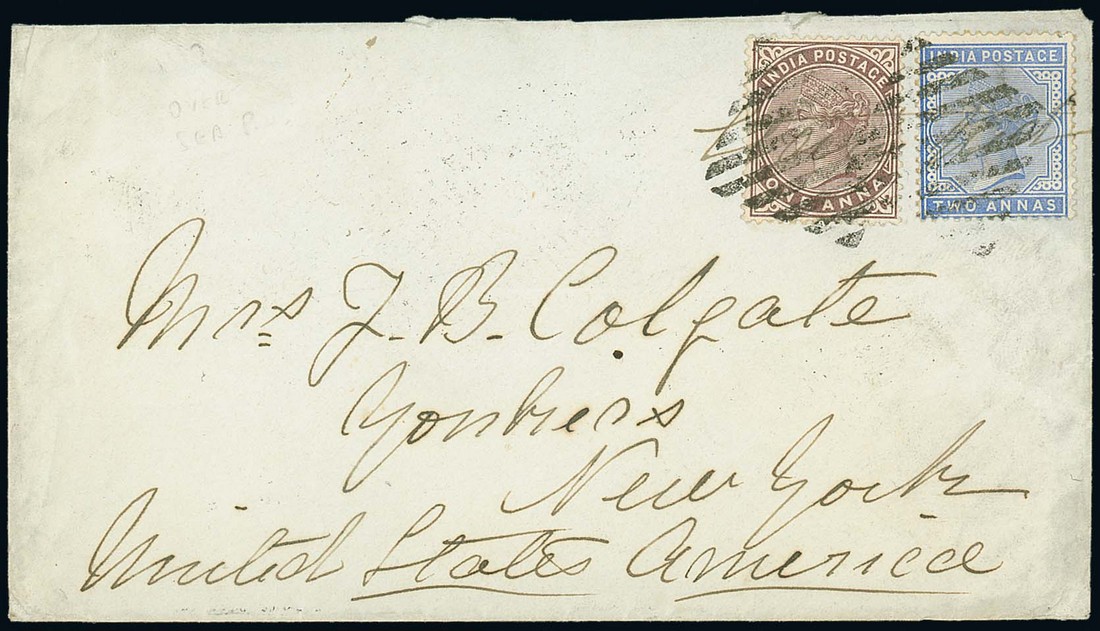 INDIA POSTAGE
ONE ANNA
INDIA POSTAGE
TWO ANNAS
OVER
Mrs J. B. Colgate
Yonkers
New York
United States America